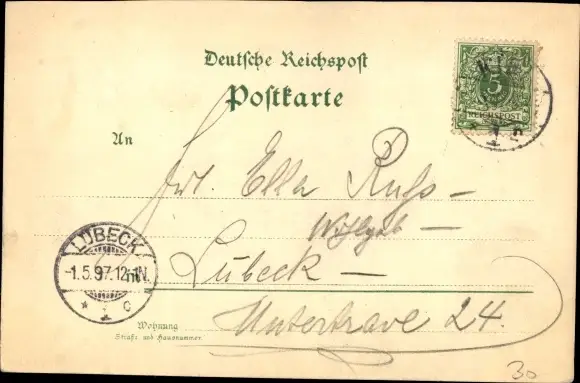 Deutsche Reichspost
Postkarte
5
REICHSPOST
An
Frl. Ella Russ –
Lübeck –
LÜBECK
-1.5.97.12-1N.
* 1 c
Untertrave 24.
Wohnung
Straße und Hausnummer
30